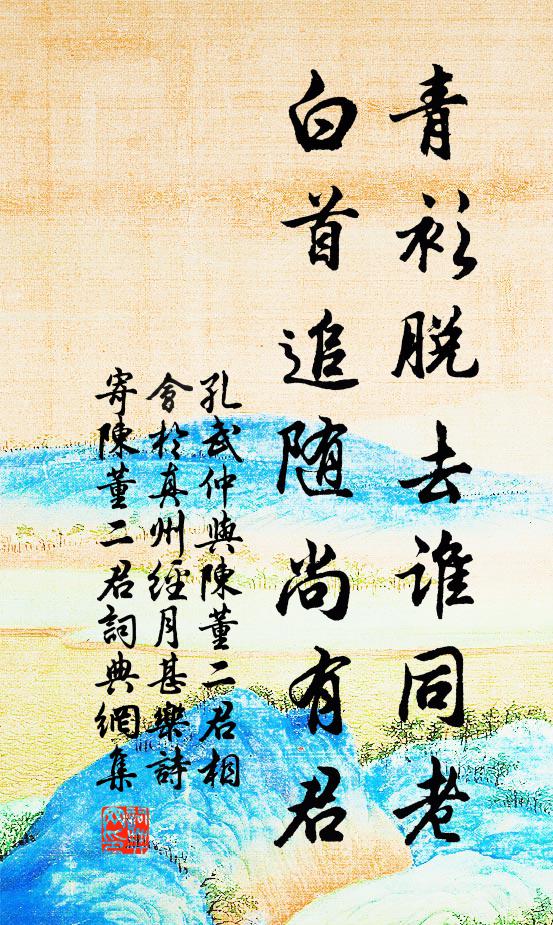 青衫脱去谁同老
白首追随尚有君
孔武仲與陳董二君相
會於真州經月甚樂詩
寄陳董二君詞典網集